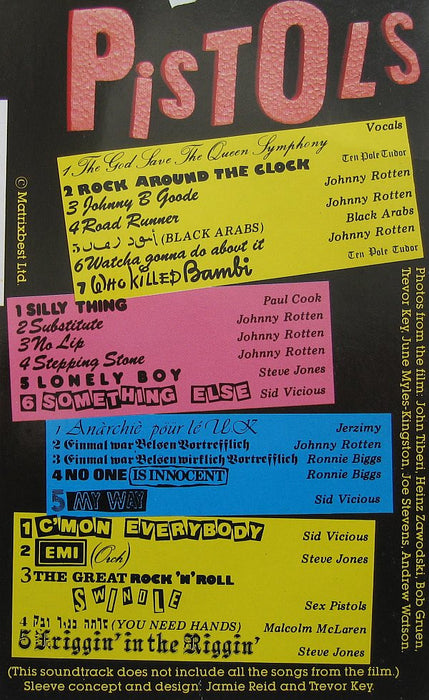 PISTOLS
Vocals
1 The God Save The Queen Symphony
2 ROCK AROUND THE CLOCK Ten Pole Tudor
3 Johnny B Goode Johnny Rotten
4 Road Runner Johnny Rotten
5 (BLACK ARABS) Black Arabs
6 Watcha gonna do about it Johnny Rotten
7 WHO KILLED Bambi Ten Pole Tudor
1 SILLY THING Paul Cook
2 Substitute Johnny Rotten
3 No Lip Johnny Rotten
4 Stepping Stone Johnny Rotten
5 LONELY BOY Steve Jones
6 SOMETHING ELSE Sid Vicious
1 Anàrchiè pour lé U K Jerzimy
2 Einmal war Belsen Vortrefflich Johnny Rotten
3 Einmal war Belsen wirklich Vortrefflich Ronnie Biggs
4 NO ONE IS INNOCENT Ronnie Biggs
5 MY WAY Sid Vicious
1 C'MON EVERYBODY Sid Vicious
2 EMI (Orch) Steve Jones
3 THE GREAT ROCK 'N' ROLL
SWINDLE Sex Pistols
4 (YOU NEED HANDS) Malcolm McLaren
5 Friggin' in the Riggin' Steve Jones
(This soundtrack does not include all the songs from the film.)
Sleeve concept and design: Jamie Reid and Trevor Key.
© Matrixbest Ltd.
Photos from the film: John Tiberi, Heinz Zawodski, Bob Gruen,
Trevor Key, June Myles-Kingston, Joe Stevens, Andrew Watson.